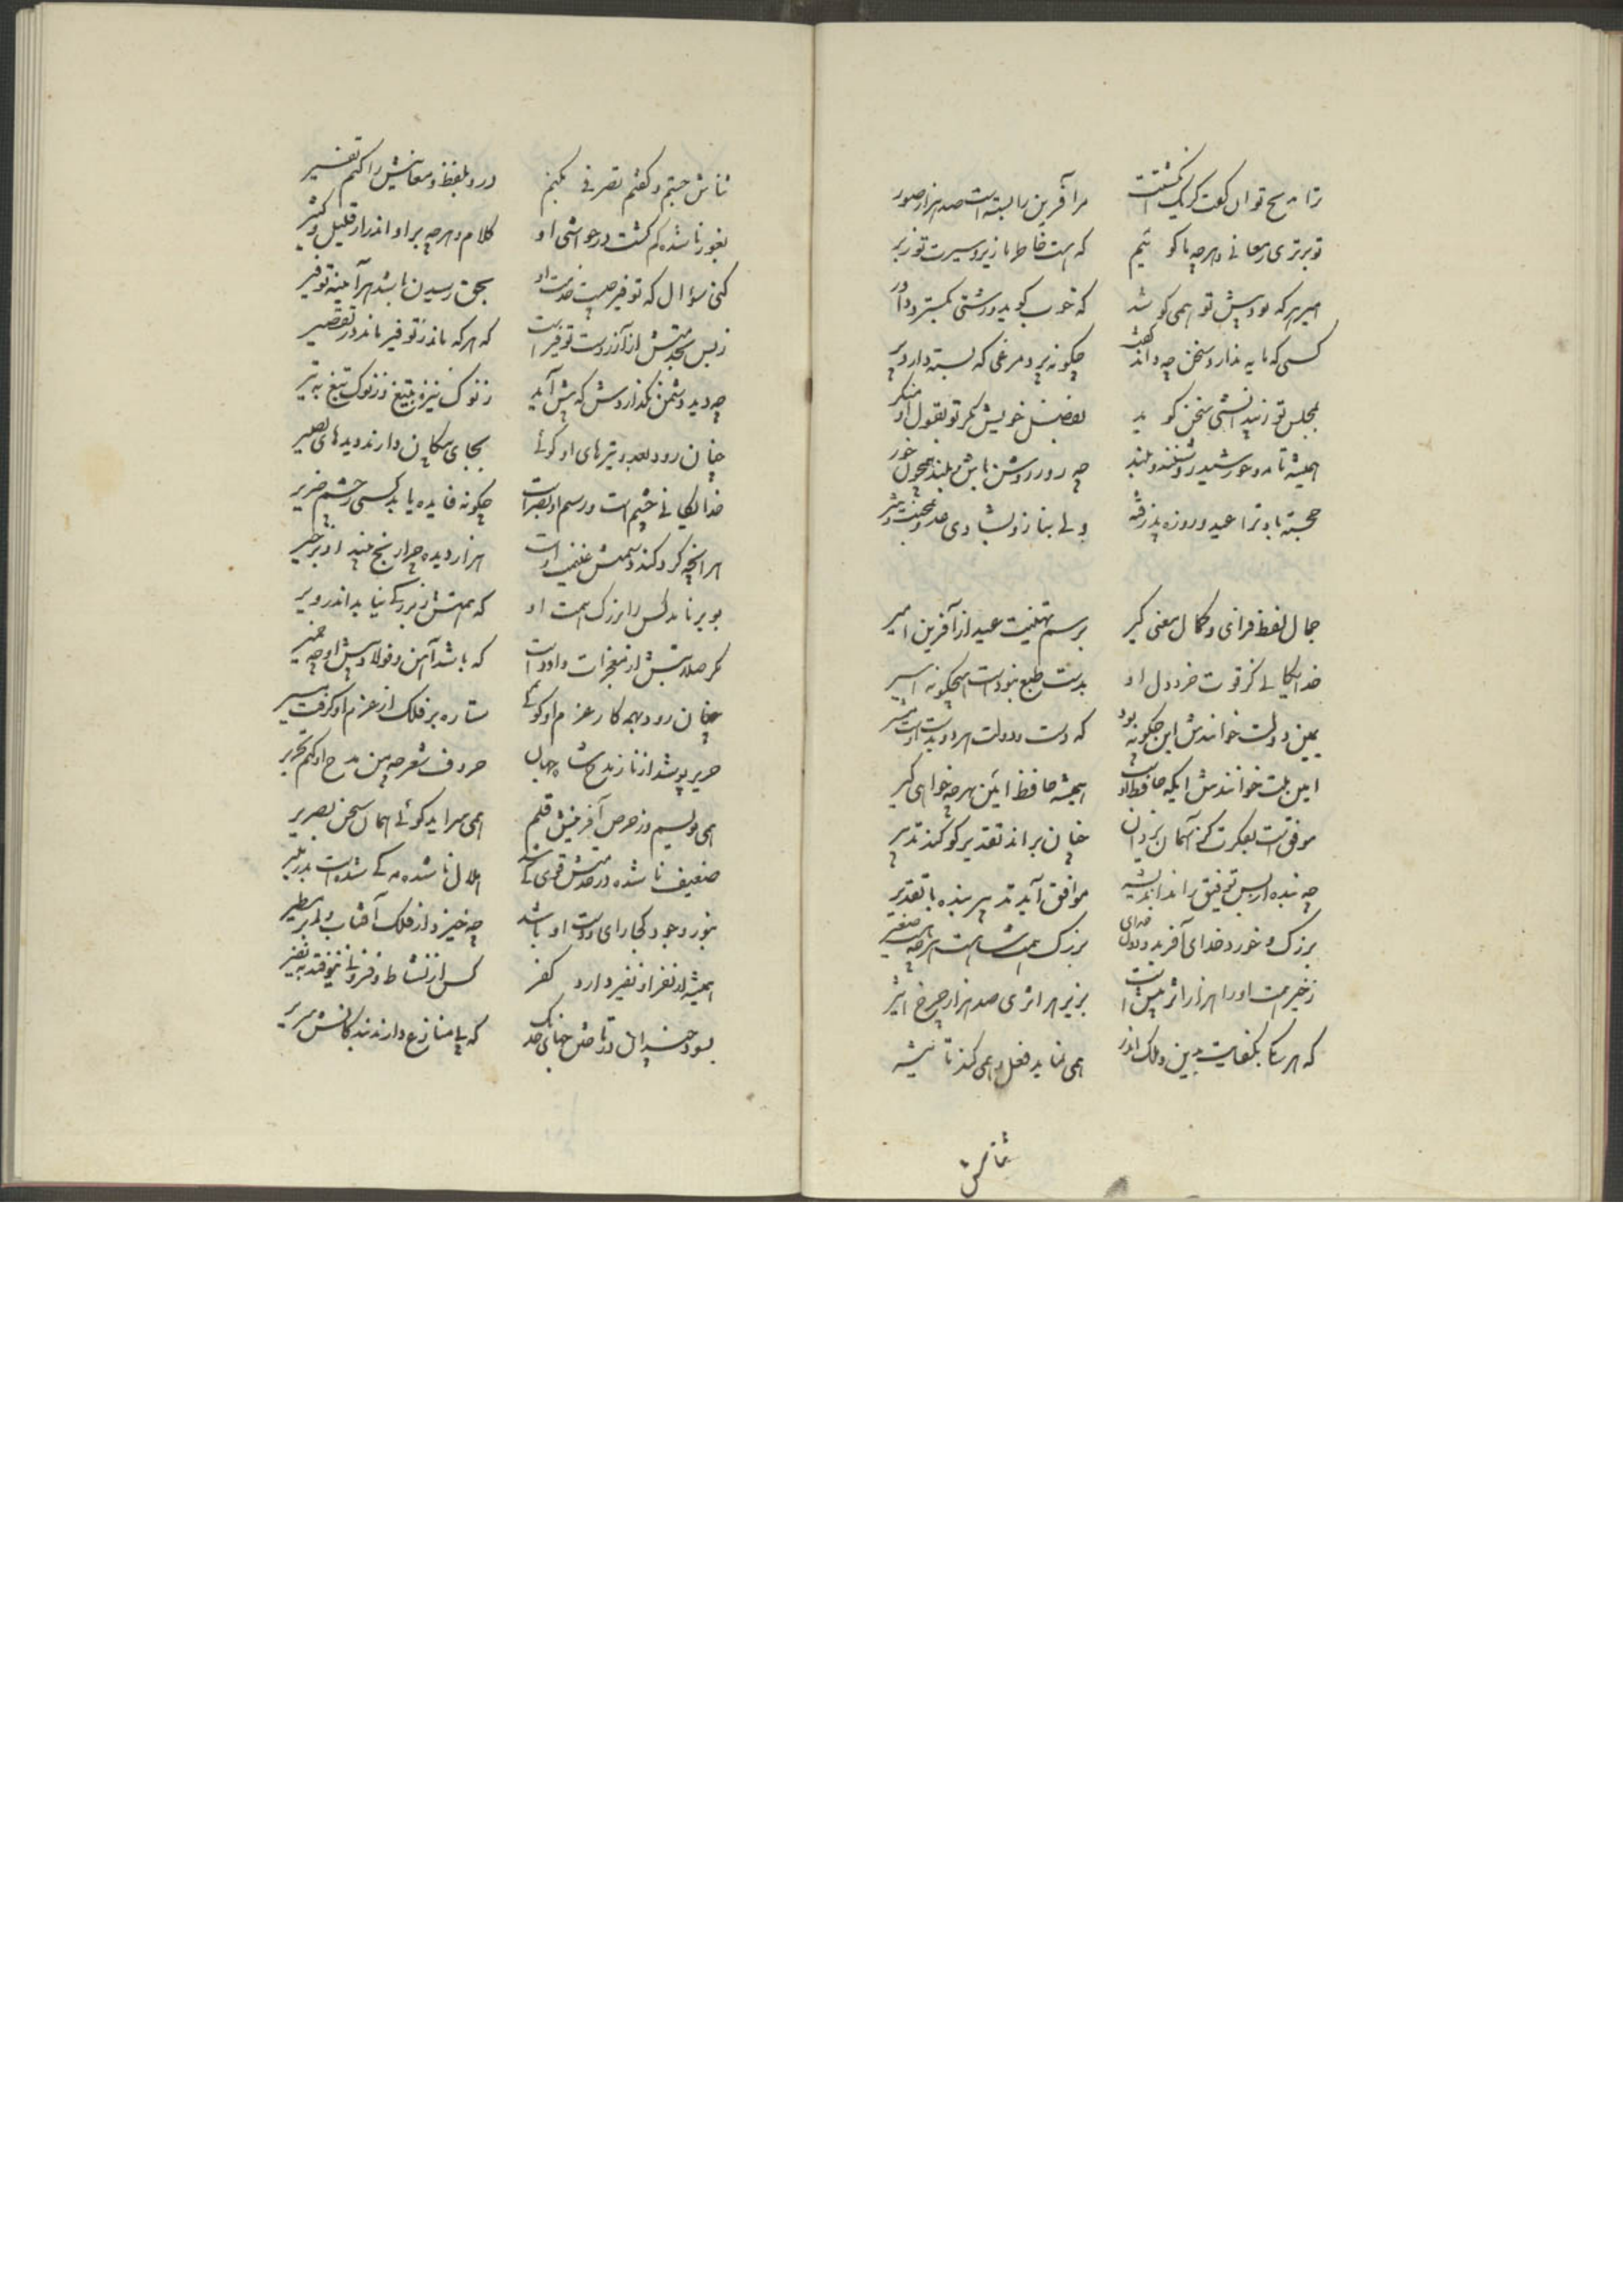 ترا مدیح توان گفت کز یک انگشتت مر آفرین را بسته است صد هزار صور
تو برتری ز معانی و هرچه ما گوئیم که هست خاطر ما زیر و سیرت تو زبر
امیر هر که بود پیش تو همی کوشد که خوب گوید و رشتی بکسترد
کسی که مایه ندارد سخن چه داند گفت چگونه پرد مرغی که بسته دارد پر
بمجلس تو ز بیدانشی سخن گوید بفضل خویش نگر تو بقول او منگر
همیشه تا مه و خورشید روشنند و بلند چه روز روشن باش و بلند همچون خور
خجسته باد ترا عید و روزه پذرفته ولی بناز و بشادی عدو
جمال لفظ فزای و کمال معنی گیر برسم تهنیت عید از آفرین امیر
خدایگانی کز قوت خرد دل او بدست طبع نبوده است هیچگونه اسیر
یمین دولت خوانندش این چگونه بود که دست و دولت هر دو بدست اوست
امین ملت خوانندش ایکه حافظ اوست همیشه حافظ امین بهر چه خواهی گیر
موفق است بفکرت کز آسمان یزدان چنان براند تقدیر کو کند تدبیر
چه بنده از پس توفیق راند اندیشه موافق آید تدبیر بنده با تقدیر
بزرگ و خورد خدای آفرید و بدل خدای بزرگ همت شاه است هرچه هست صغیر
ز خیر همت او را هزار اثر بیش است بزیر هر اثری صد هزار چرخ اثیر
که هر یکا بکفایت بدین و ملک اندر همی نماید فعل و همی کند تاثیر
ثناش
ثناش جستم و گفتم تصرفی بکنم درو بلفظ و معانیش را کنم تفسیر
بغور ناشده گم گشت در حواشی او کلام و هرچه بر او اندر از قلیل و کثیر
کنی سؤال که توفیر چیست خدمت او بحق رسیدن باشد هرآینه توفیر
ز بس بخدمتش اندر است توفیر است که هر که ماند ز توفیر ماند در تقصیر
چه دید دشمن نگذاردش که پیش آید ز نوک نیزه بتیغ و ز نوک تیغ به تیر
چنان رود بعدو تیرهای او گوئی بجای پیکان دارند دیدهای بصیر
خدایگانی چشم است و رسم او بصر است چگونه فایده یابد کسی ز چشم ضریر
هر آنچه گرد کند دشمنش غنیمت اوست هزار دیده چرا رنج بیند او بر خیر
بوبر نامد کس را بزرگ همت او که همتش ز بزرگی نیاید اندر ویر
مگر صلابتش از معجزات داود است که باشد آهن و فولاد پیش او چه خمیر
چنان رود بهمه کار عزم او گوئی ستاره بر فلک از عزم او گرفت مسیر
حریر پوشد از ناز مدح شاه جهان حروف شعر چه من مدح او کنم تحریر
همی نویسم و ز حرص آفرینش قلم همی سراید گوئی همان سخن بصریر
ضعیف ناشده در خدمتش قوی کی شد هلال ناشده مه کی شده است بدر منیر
بنور و جود کجا رای و دست او باشد چه خیزد از فلک آفتاب و ابر مطیر
همیشه از نفر او نفیر دارد کفر کس از نشاط و فزونی نیوفتد به نفیر
بسود چندان در تاختن چنانی خنگ که پا منازع دارند بندگانش سریر